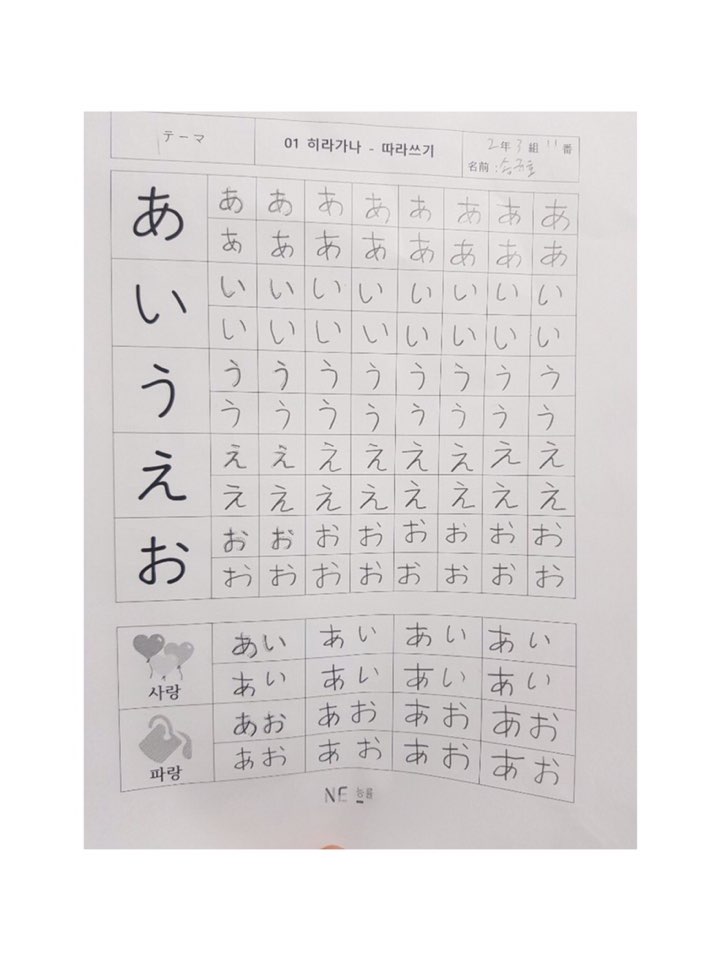 テーマ
01 히라가나 - 따라쓰기
2年 3組 11番
名前 :
あ
あ あ あ あ あ あ あ あ
あ あ あ あ あ あ あ あ
い
い い い い い い い い
い い い い い い い い
う
う う う う う う う う
う う う う う う う う
え
え え え え え え え え
え え え え え え え え
お
お お お お お お お お
お お お お お お お お
사랑
あい あい あい あい
あい あい あい あい
파랑
あお あお あお あお
あお あお あお あお
NE 능률